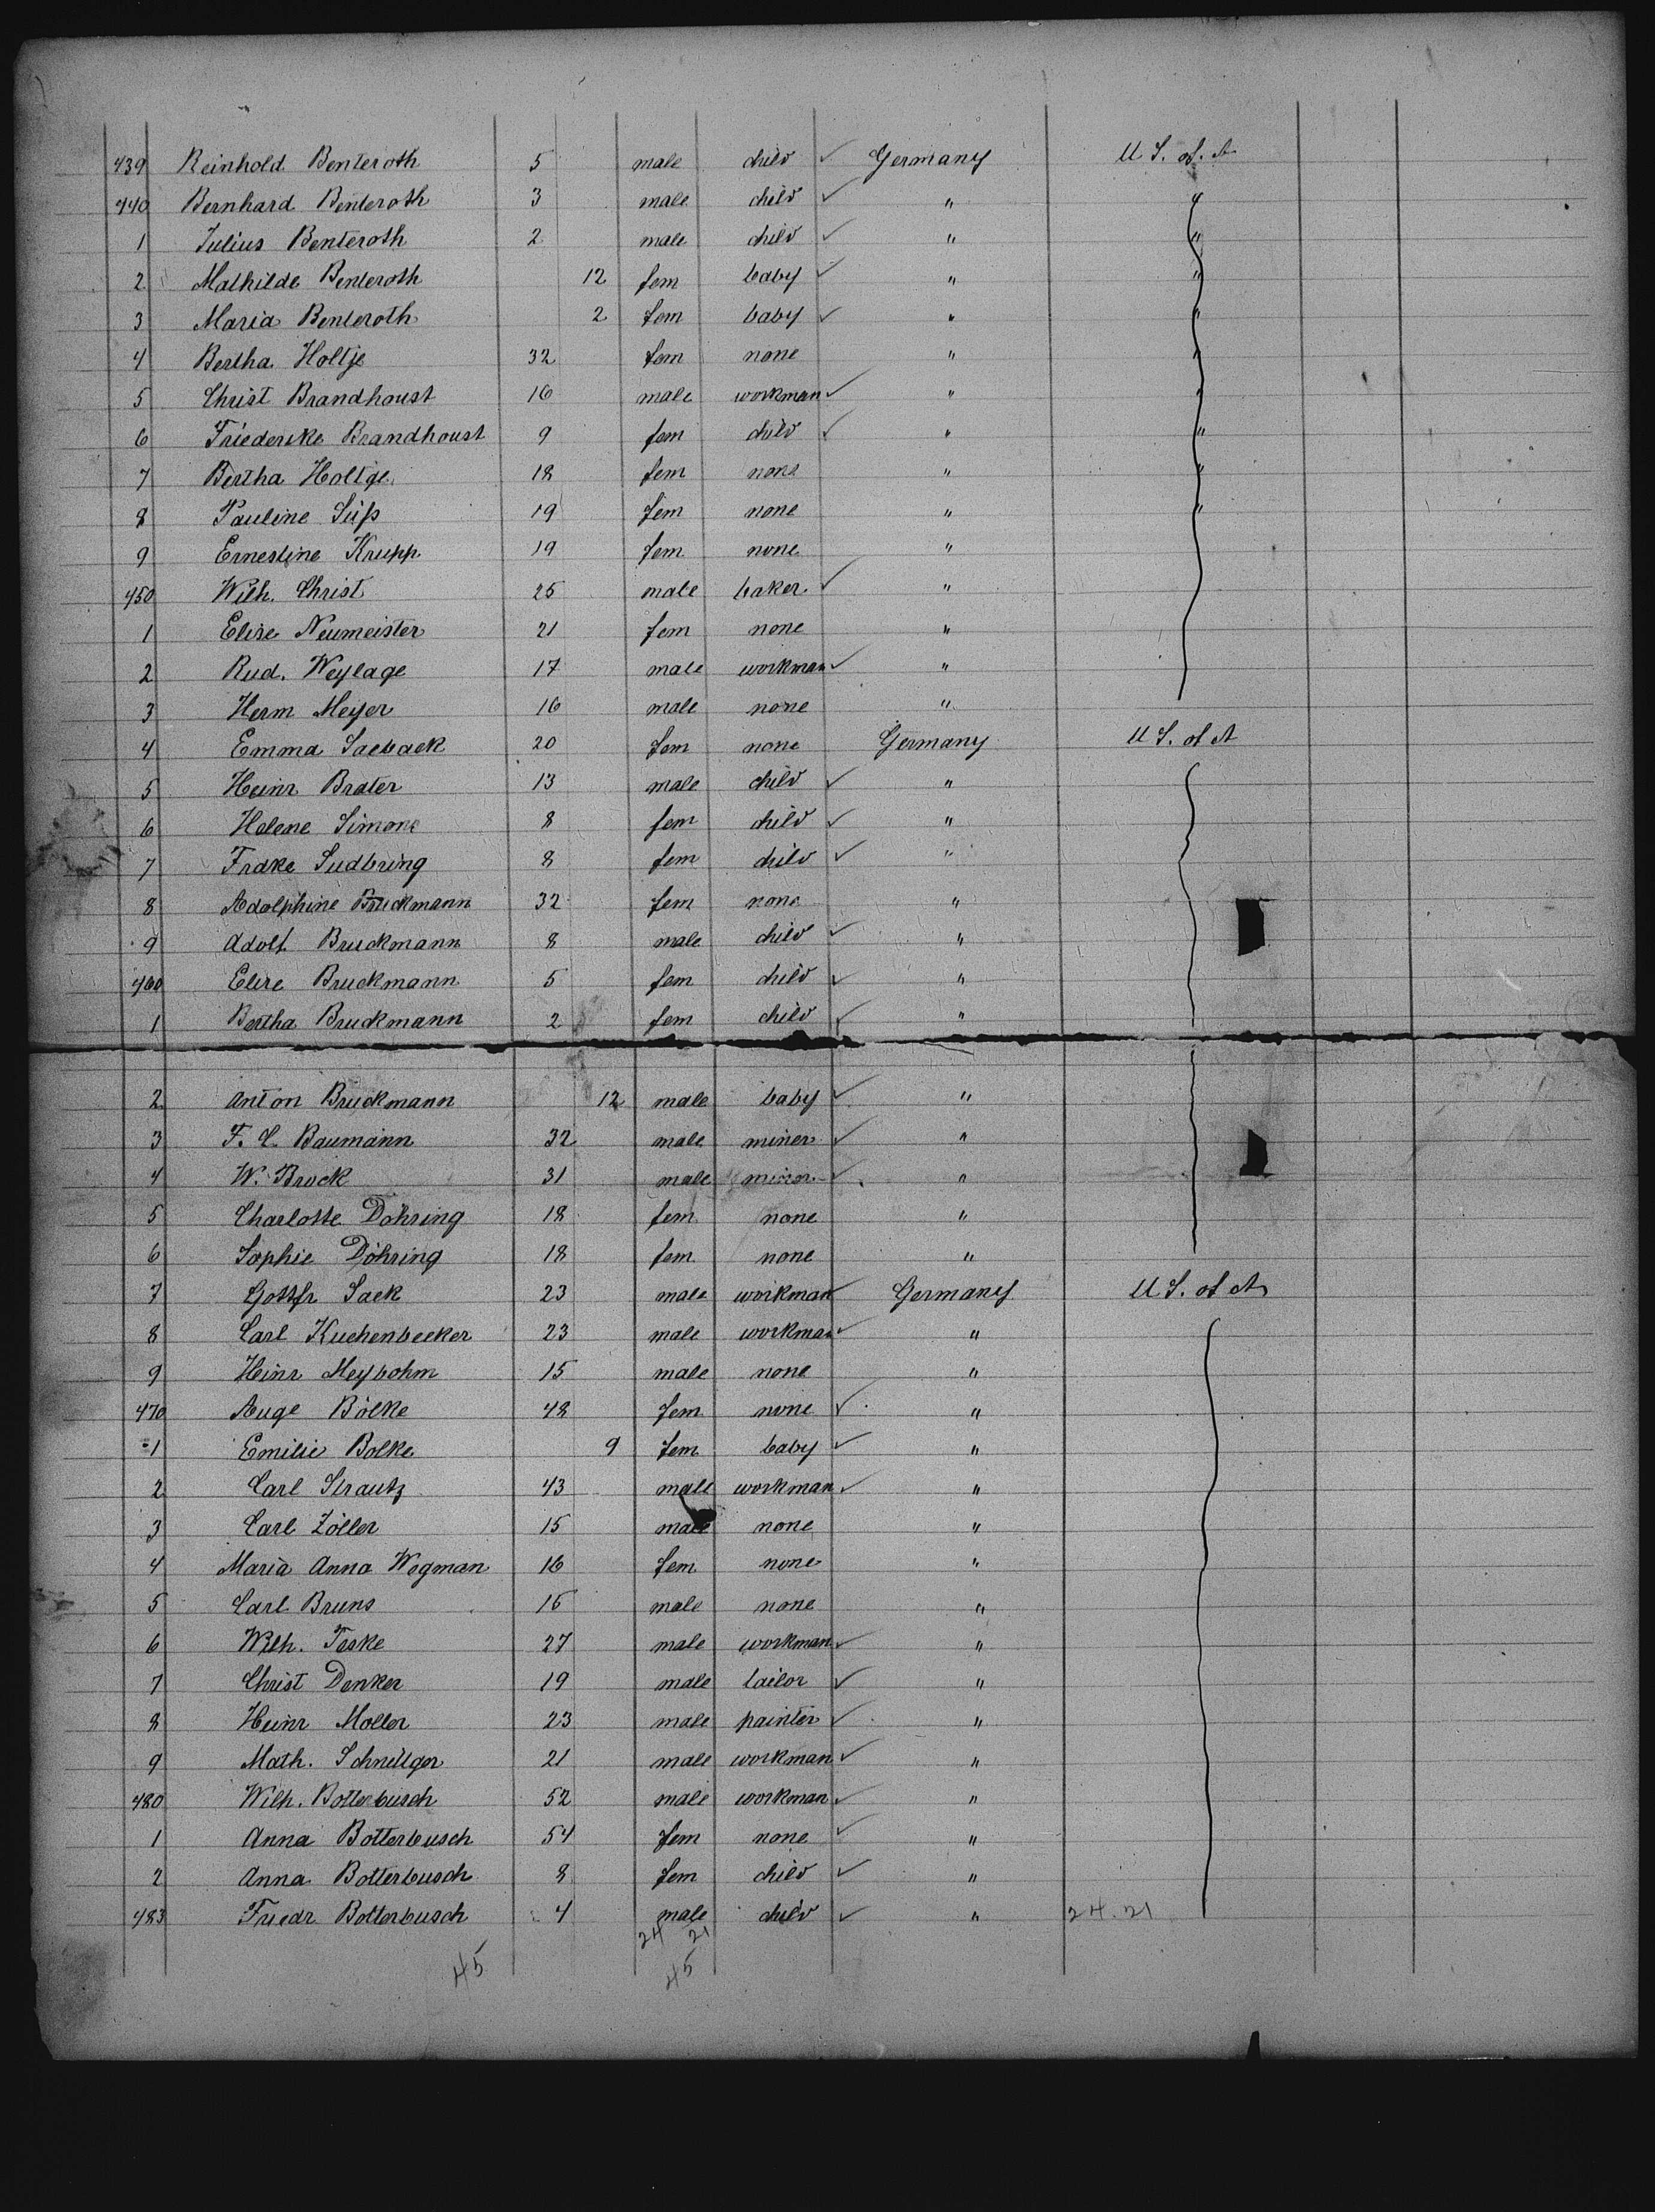 439 Reinhold Benteroth 5 male child ✓ Germany U S. of. A.
440 Bernhard Benteroth 3 male child ✓ " "
1 Julius Benteroth 2 male child ✓ " "
2 Mathilde Benteroth 12 fem baby ✓ " "
3 Maria Benteroth 2 fem baby ✓ " "
4 Bertha Holtje 32 fem none " "
5 Christ Brandhoust 16 male workman ✓ " "
6 Friederike Brandhoust 9 fem child ✓ " "
7 Bertha Holtge 18 fem none " "
8 Pauline Süß 19 fem none " "
9 Ernestine Krupp 19 fem none "
450 Wilh. Christ 25 male baker ✓ "
1 Elise Neumeister 21 fem none "
2 Rud. Weylage 17 male workman ✓ "
3 Herm Meyer 16 male none "
4 Emma 20 fem none Germany U S. of A
5 Heinr Brater 13 male child ✓ "
6 Helene Simone 8 fem child ✓ "
7 Frdke Sudbring 8 fem child ✓ "
8 Adolphine Bruckmann 32 fem none "
9 Adolf Bruckmann 8 male child ✓ "
460 Elise Bruckmann 5 fem child ✓ "
1 Bertha Bruckmann 2 fem child ✓ "
2 Anton Bruckmann 12 male baby ✓ "
3 F. C. Baumann 32 male miner ✓ "
4 W. Brock 31 male miner ✓ "
5 Charlotte Döhring 18 fem none "
6 Sophie Döhring 18 fem none "
7 Gottfr Sack 23 male workman ✓ Germany U S. of A
8 Carl Kuchenbecker 23 male workman ✓ "
9 Heinr Meybohm 15 male none "
470 Auge Bölke 48 fem none ✓ "
1 Emilie Bolke 9 fem baby ✓ "
2 Carl Strautz 43 male workman ✓ "
3 Carl Zöller 15 male none "
4 Maria Anna Wegman 16 fem none "
5 Carl Bruns 15 male none "
6 Wilh. Teske 27 male workman ✓ "
7 Christ Denker 19 male tailor ✓ "
8 Heinr Moller 23 male painter ✓ "
9 Math. Schnittger 21 male workman ✓ "
480 Wilh. Botterbusch 52 male workman ✓ "
1 Anna Botterbusch 54 fem none ✓ "
2 Anna Botterbusch 8 fem child ✓ "
483 Friedr Botterbusch 4 male child ✓ " 24. 21
24 21
45 45